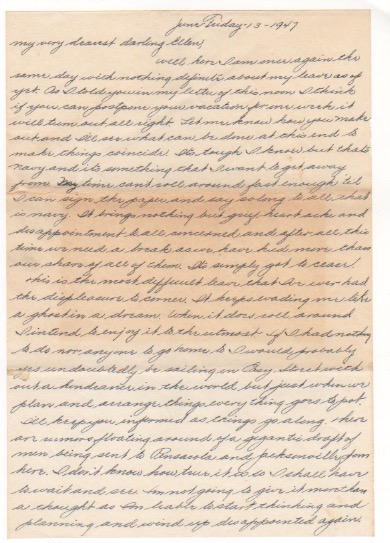 June Friday-13-1947
my very dearest darling Ellen,
well here I am once again the
same day with nothing definite about my leave as of
yet. As I told you in my letter of this noon I think
if you can postpone your vacation for one week it
will turn out all right. Let me know how you make
out and I'll see what can be done at this end to
make things coincide. Its tough I know but thats
navy and its something that I want to get away
from. Day time cant roll around fast enough 'til
I can sign the paper and say so long to all that
is navy. It brings nothing but grief heart ache and
disappointment to all concerned and after all this
time we need a break as we have had more than
our share of all of them. Its simply got to cease!
This is the most difficult leave that I've ever had
the displeasure to corner. It keeps evading me like
a ghost in a dream. When it does roll around
I intend to enjoy it to the utmost. If I had nothing
to do nor anyone to go home to I would probably
yes undoubtedly be sailing in Bay Street with
out a hindrance in the world but just when we
plan and arrange things everything goes to pot.
I'll keep you informed as things go along. There
are rumors floating around of a gigantic draft of
men being sent to Pensacola and Jacksonville from
here. I don't know how true it is so I shall have
to wait and see. Im not going to give it more than
a thought as Im liable to start thinking and
planning and wind up disappointed again.